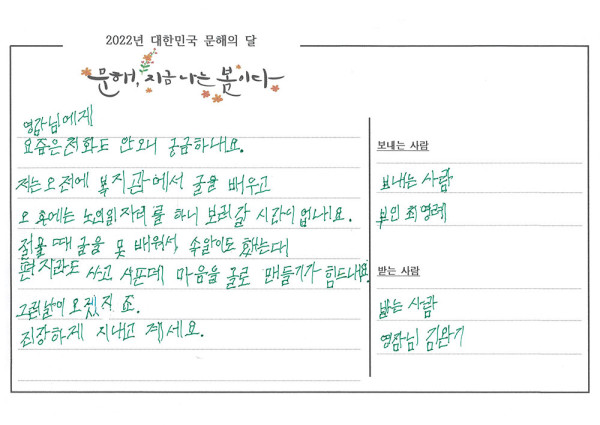 2022년 대한민국 문해의 달
문해, 지금 나는 봄이다
영감님에게
요즘은 전화도 안오니 궁금하내요.
저는 오전에 복지관에서 글을 배우고
오후에는 노인일자리를 하니 보러갈 시간이 업내요.
젊을 때 글을 못 배워서, 속알이도 했는대
편지라도 사고 시픈데 마음을 글로 맨들기가 힘드내요
그런날이 오겠지 죠.
건강하게 지내고 계세요.
보내는 사람
보내는 사람
부인 최명례
받는 사람
받는 사람
영감님 김완기